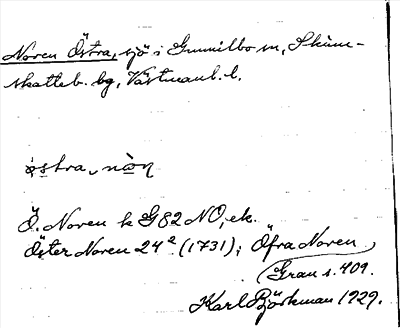 Noren Östra, sjö i Gunnilbo sn, Skinn-
skatteb. bg, Västmanl. l.
östra, nòn
Ö. Noren k G82 NO, ek.
Öster Noren 24² (1731); Öfra Noren
Gran s. 409.
Karl Björkman 1929.